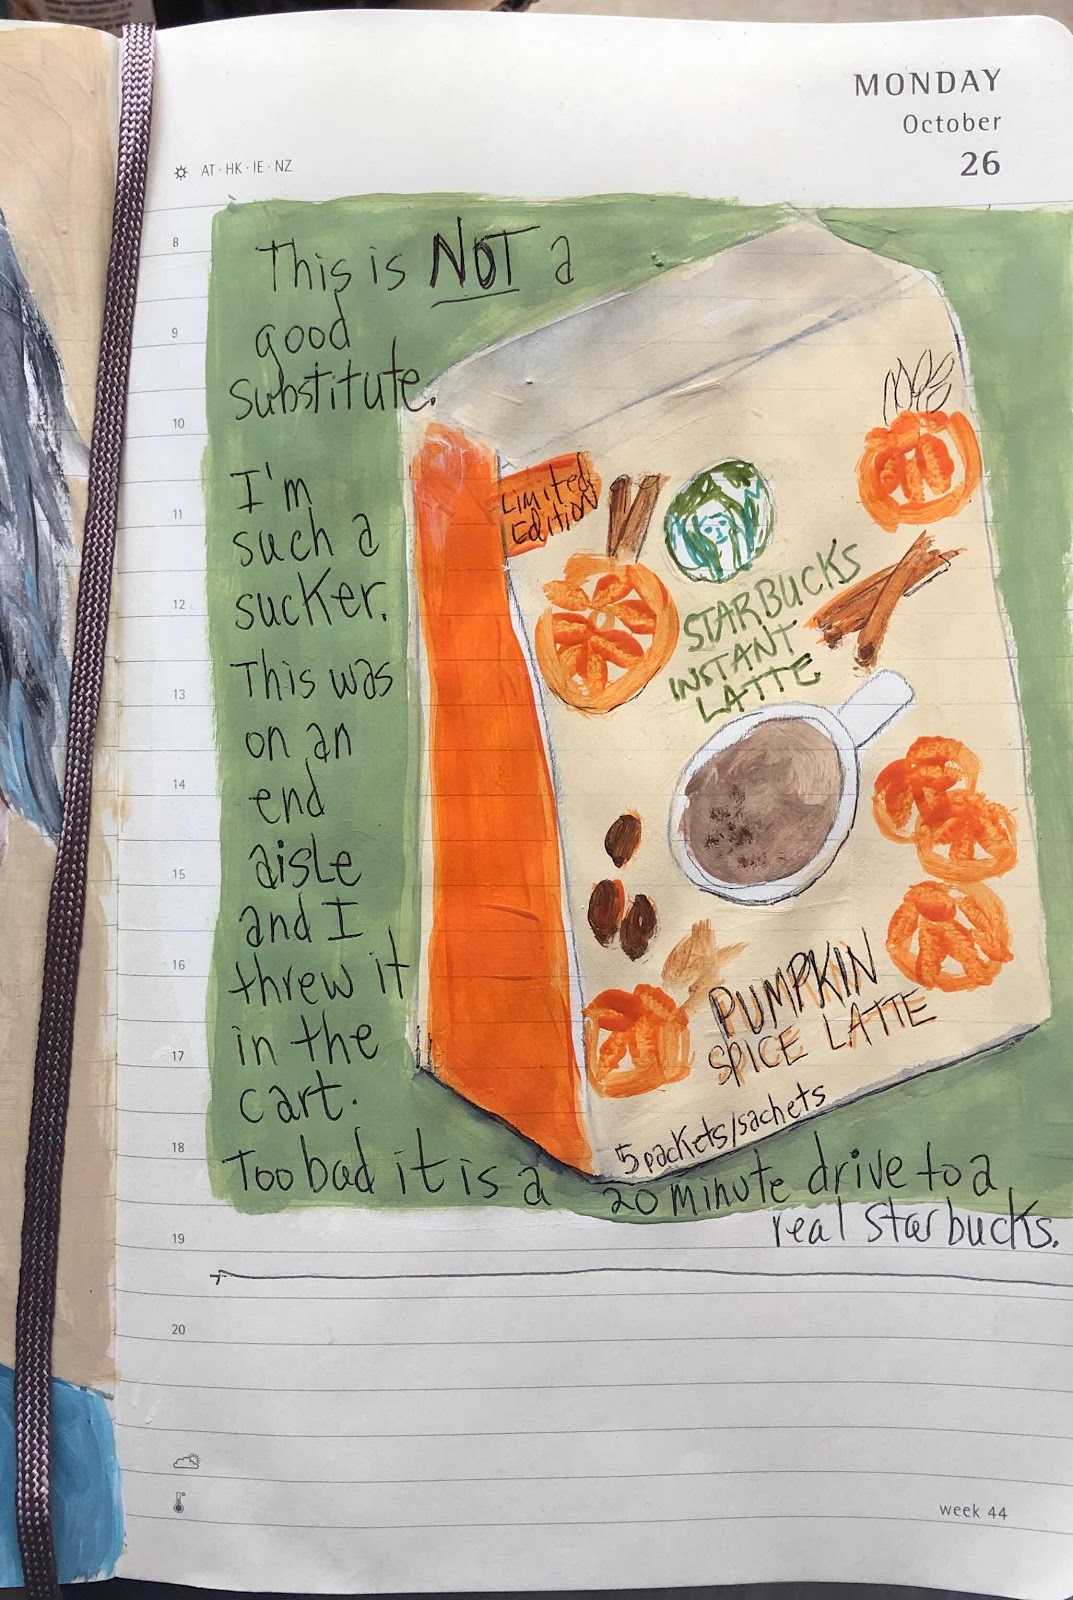 MONDAY
October
26
AT · HK · IE · NZ
8
9
10
11
12
13
14
15
16
17
18
19
20
This is NOT a
good
substitute.
I'm
such a
sucker.
This was
on an
end
aisle
and I
threw it
in the
cart.
Too bad it is a 20 minute drive to a
real Starbucks.
Limited
Edition
STARBUCKS
INSTANT
LATTE
PUMPKIN
SPICE LATTE
5 packets/sachets
week 44